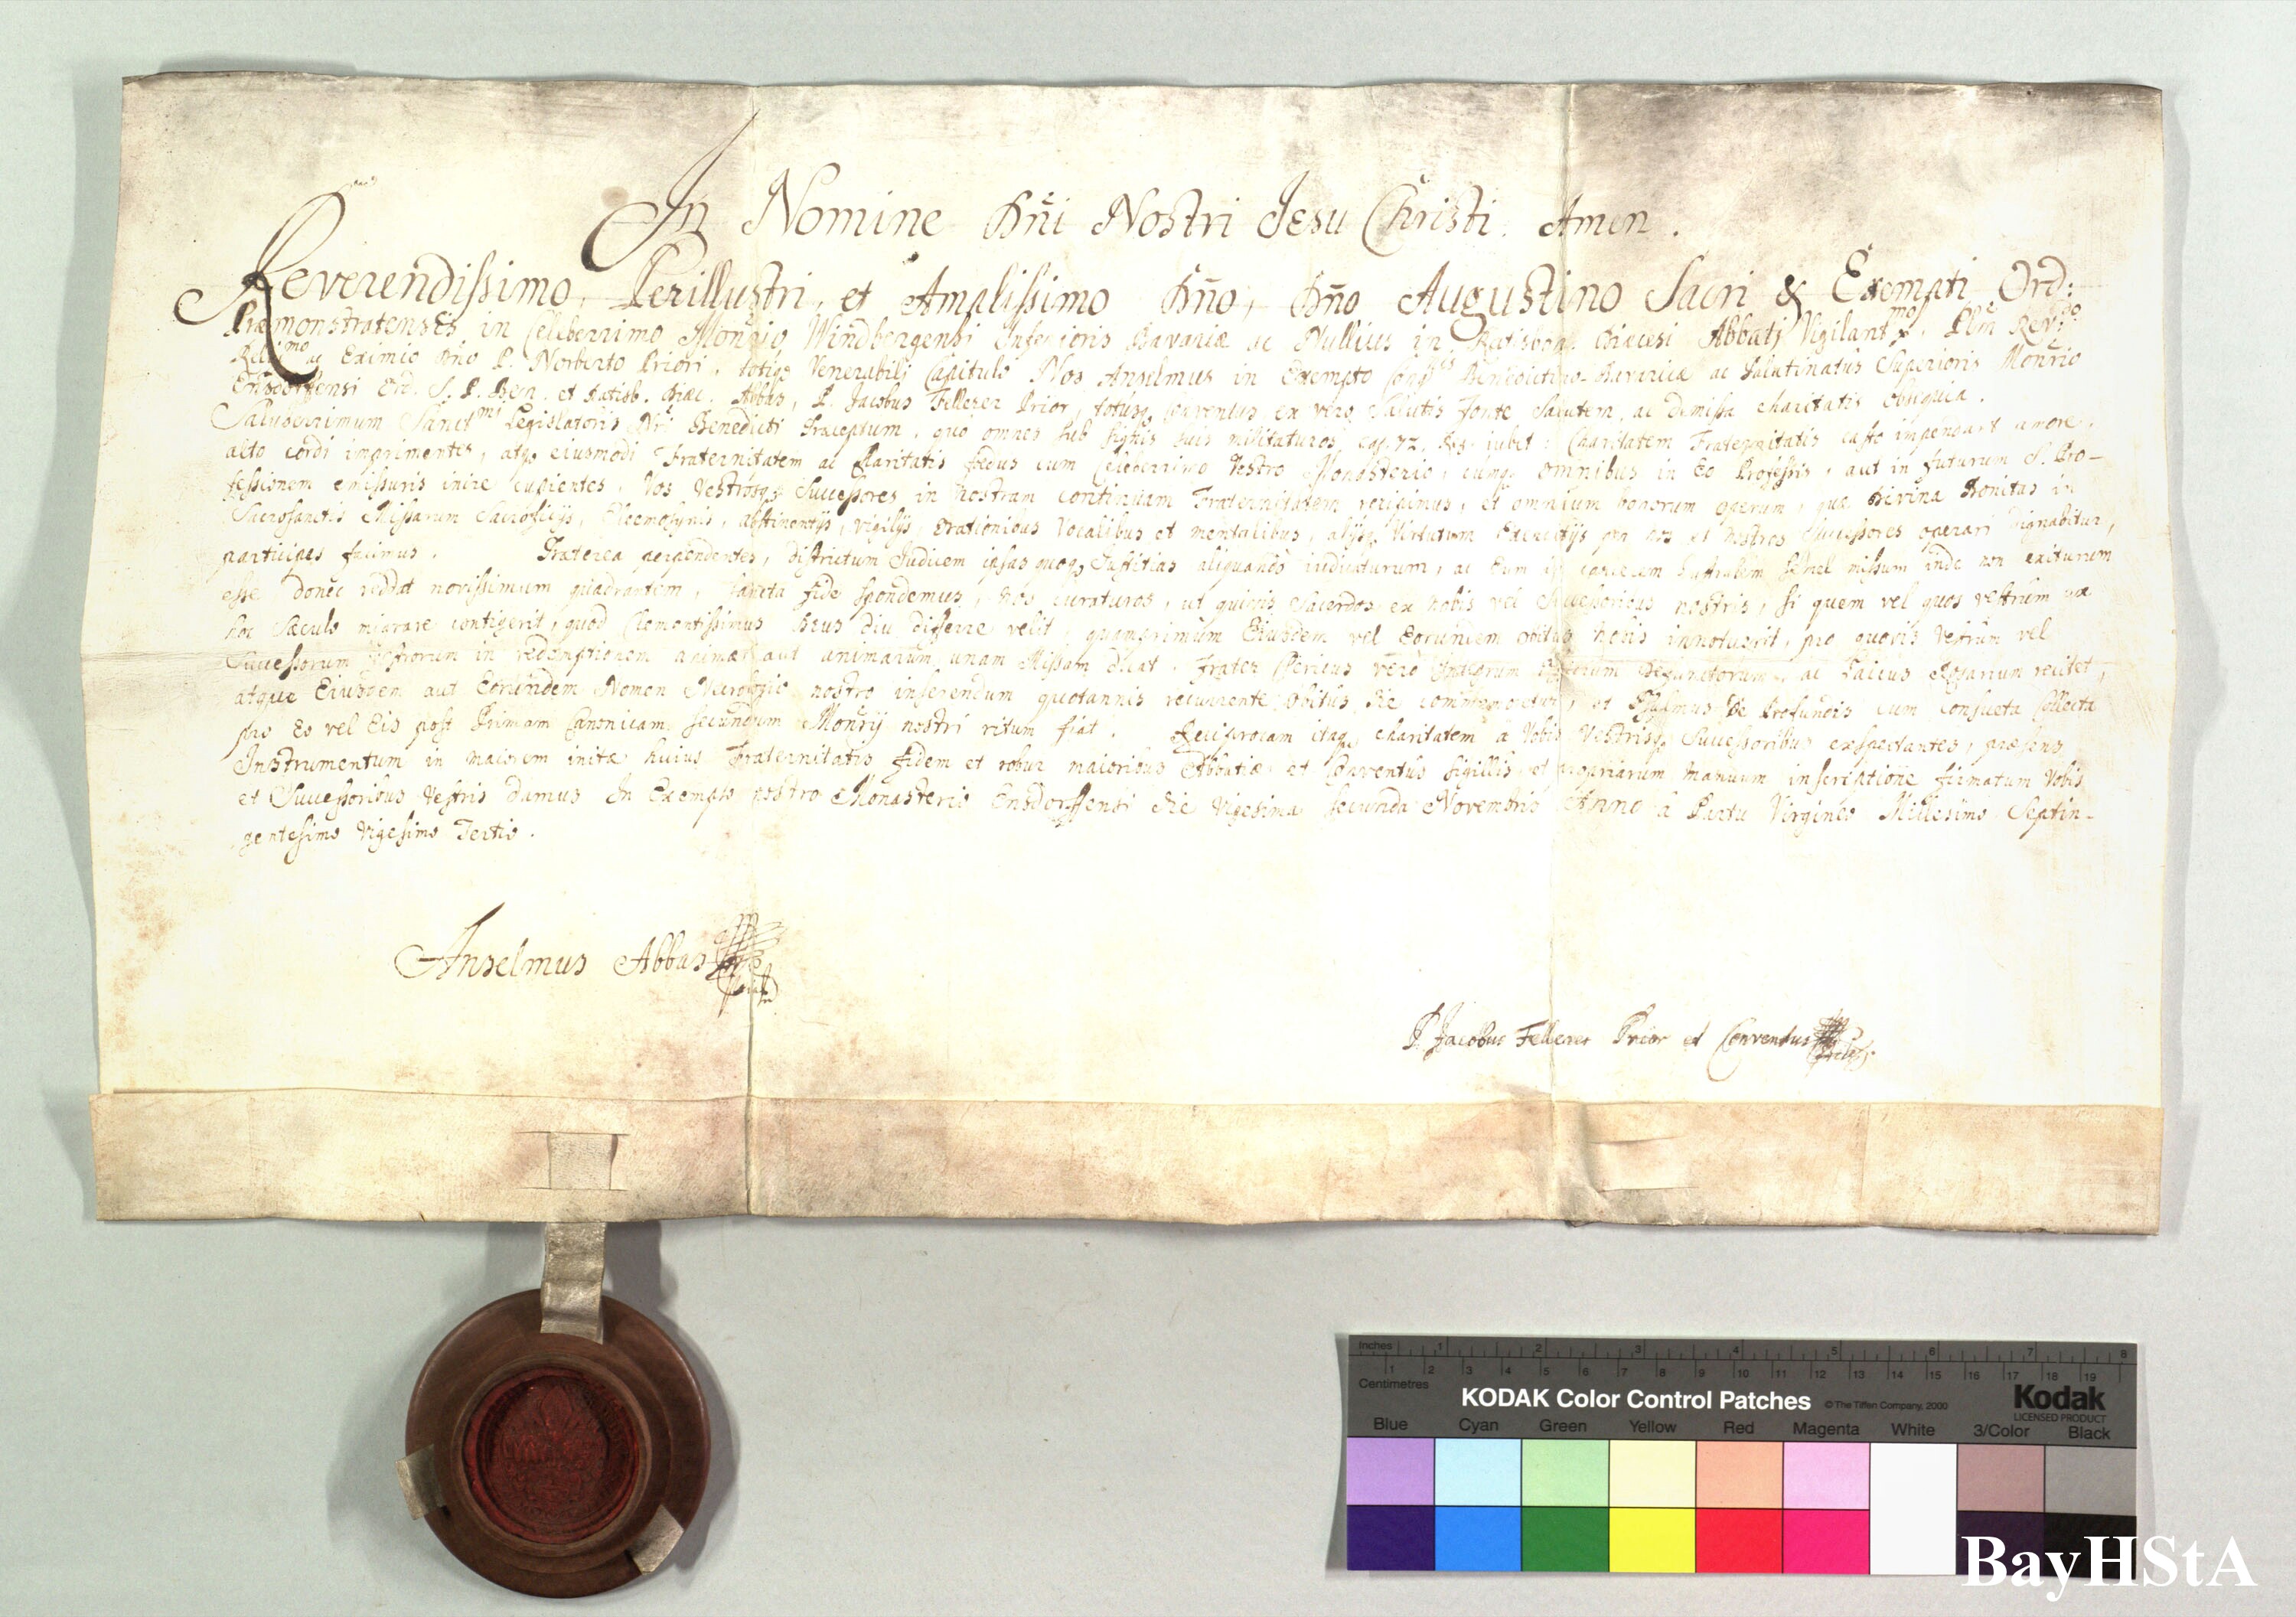 In Nomine Dn̄i Nostri Jesu Christi. Amen.
Reverendissimo, Perillustri, et Amplissimo Dn̄o, Dn̄o Augustino Sacri & Exempti Ord:
Præmonstratensis in Celeberrimo Monr̄io Windbergensi Inferioris Bavariæ ac Nullius in Ratisbon. Diæcesi Abbati Vigilantmo. Plm̄ Revdo
Religmo ac Eximio Dn̄o P. Norberto Priori, totiq, Venerabili Capitulo Nos Anselmus in Exempto Benedictino-Bavaricæ ac Palatinatus Superioris Monr̄io
Ensdorffensi Ord. S. P. Ben. et Ratisb. Diæc. Abbas, P. Jacobus Fellerer Prior, totusq, Conventus ex vero Salutis fonte Salutem, ac demissa charitatis obsequia.
Saluberrimum Sanctmi Legislatoris Nr̄i Benedicti Præceptum, quo omnes sub signis suis militaturos cap. 72. Reg. iubet: Charitatem Fraternitatis casto impendant amore,
alto cordi imprimentes, atq, eiusmodi Fraternitatem ac Charitatis fædus cum Celeberrimo Vestro Monasterio, cumq, omnibus in Eo Professis, aut in futurum S. Pro-
fessionem emissuris inire cupientes, Vos Vestrosq, Successores in Nostram continuam Fraternitatem recipimus, et omnium bonorum operum, quæ Divina Bonitas in
Sacrosanctis Missarum Sacrificijs, Eleemosynis, abstinentijs, vigilijs, orationibus Vocalibus et mentalibus, alijsq, Virtutum Exercitijs per nos et Nostros Successores operari dignabitur,
participes facimus. Præterea perpendentes, districtum Judicem ipsas quoq, Justitias aliquandò iudicaturum, ac Eum in carcerem semel missum inde non exiturum
esse donec reddat novissimum quadrantem, sancta fide spondemus, Nos curaturos, ut quivis Sacerdos ex nobis vel Successoribus nostris, si quem vel quos vestrum ex
hoc Sæculo migrare contigerit, quod Clementissimus Deus diu differre velit, quamprimùm Eiusdem vel Eorundem obitus nobis innotuerit, pro quovis Vestrûm vel
Successorum Vestrorum in redemptionem animæ aut animarum unam Missam dicat. Frater Clericus verò Integrum Officium Defunctorum, ac Laicus Rosarium recitet,
atque Eiusdem aut Eorundem Nomen Necrologio nostro inserendum quotannis recurrente obitus die commemoretur, et Psalmus De Profundis cum consueta Collecta
pro Eo vel Eis post Primam Canonicam secundum Monr̄ij nostri ritum fiat. Reciprocam itaq, charitatem a Vobis Vestrisq, Successoribus exspectantes, præsens
Instrumentum in maiorem initæ huius Fraternitatis fidem et robur maioribus Abbatiæ et Conventûs sigillis, et propriarum manuum inscriptione firmatum Vobis
et Successoribus Vestris damus In Exempto nostro Monasterio Ensdorffensi die Vigesima secunda Novembris Anno à Partu Virgineo Millesimo Septin-
gentesimo Vigesimo Tertio.
Anselmus Abbas
P. Jacobus Fellerer Prior et Conventus
inches 1 2 3 4 5 6 7 8
Centimetres 1 2 3 4 5 6 7 8 9 10 11 12 13 14 15 16 17 18 19
KODAK Color Control Patches © The Tiffen Company, 2000 Kodak
LICENSED PRODUCT
Blue Cyan Green Yellow Red Magenta White 3/Color Black
BayHStA